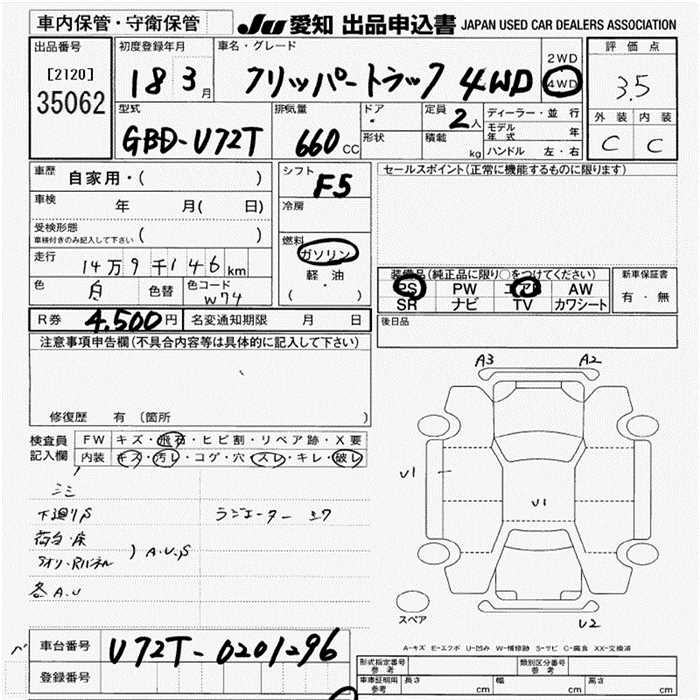 車内保管・守衛保管
JU 愛知 出品申込書 JAPAN USED CAR DEALERS ASSOCIATION
出品番号
[2120]
35062
初度登録年月
18 3月
車名・グレード
クリッパートラック 4WD
2WD
4WD
評価点
3.5
外装 内装
C C
型式
GBD-U72T
排気量
660 CC
ドア
・
形状
定員
2人
積載
kg
ディーラー・並行
モデル年式 年
ハンドル 左・右
車歴
自家用・( )
車検
年 月( 日)
受検形態
車検付きのみ記入して下さい ( )
走行
14万9千146km
色 白 色替 色コード W74
シフト
F5
冷房
燃料
ガソリン
軽油
( ・ )
セールスポイント(正常に機能するものに限ります)
装備品(純正品に限り○をつけてください)
PS PW エアB AW
SR ナビ TV カワシート
新車保証書
有・無
R券 4,500円 名変通知期限 月 日
後日品
注意事項申告欄(不具合内容等は具体的に記入して下さい)
修復歴 有(箇所 )
検査員記入欄
FW キズ・飛石・ヒビ割・リペア跡・X要
内装 キズ・汚レ・コゲ・穴・スレ・キレ・破レ
下廻りS
ラジエーター
荷台・床
A.U.S
各A.U
A3 A2
U1
U1
U2
スペア
A-キズ E-エクボ U-凹み W-補修跡 S-サビ C-腐食 XX-交換済
車台番号 U72T-0201296
登録番号
形式指定番号 参考
類別区分番号 参考
車庫証明用 参考 長さ cm 幅 cm 高さ cm